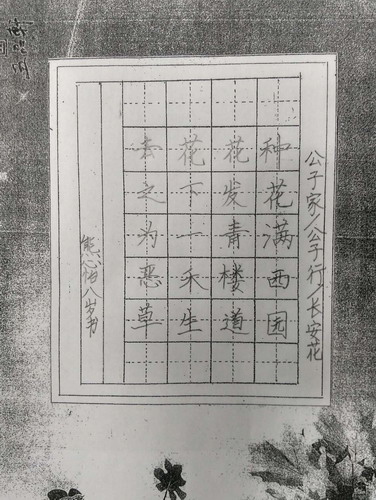 公子家/公子行/长安花
种花满西园
花发青楼道
花下一禾生
去之为恶草
熊心怡八岁书